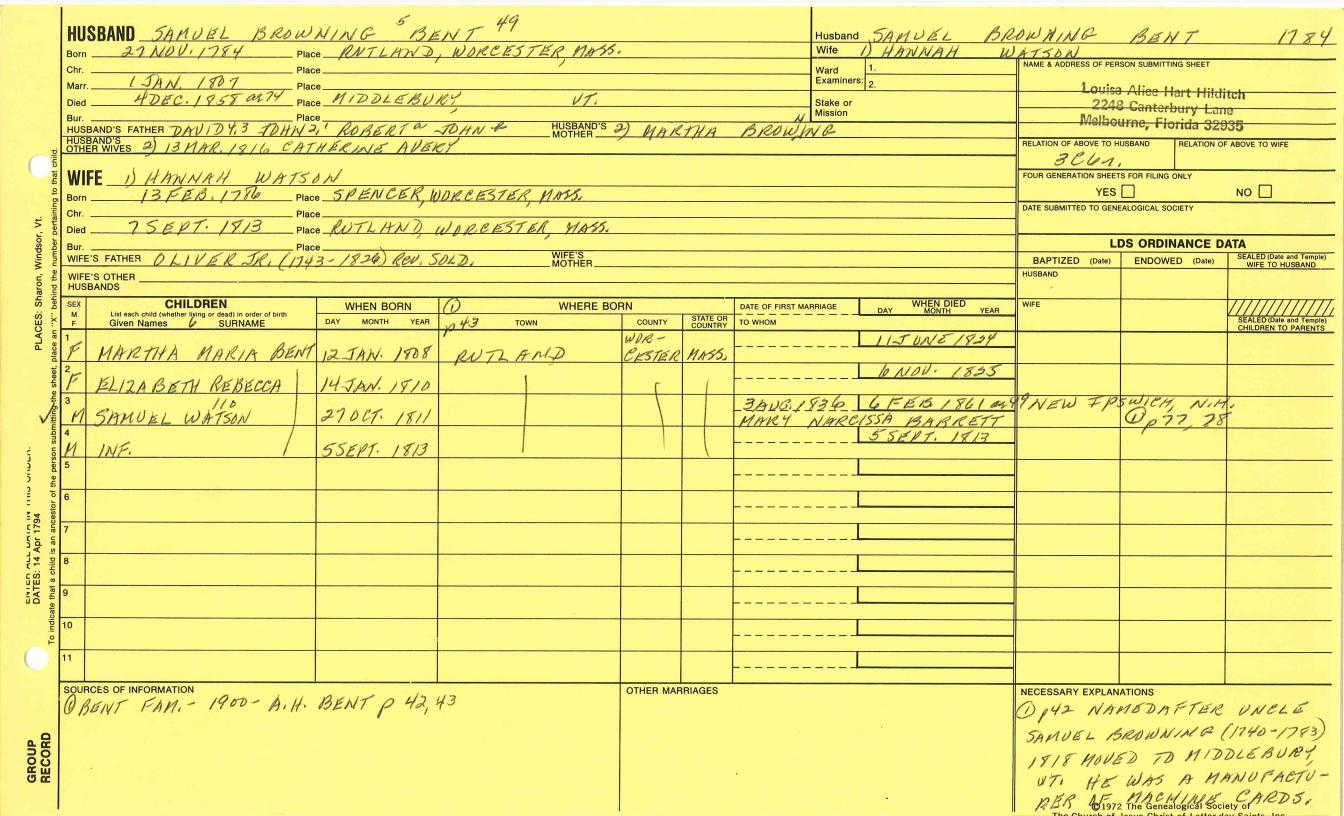 HUSBAND SAMUEL BROWNING 5 BENT 49
Born 27 NOV. 1784 Place RUTLAND, WORCESTER, MASS.
Chr. Place
Marr. 1 JAN. 1807 Place
Died 4 DEC. 1858 at 74 Place MIDDLEBURY, VT.
Bur. Place
HUSBAND'S FATHER DAVID 4,3 JOHN 2,1 ROBERT JOHN HUSBAND'S MOTHER 2) MARTHA BROWNING
HUSBAND'S OTHER WIVES 2) 13 MAR. 1816 CATHERINE AVERY
WIFE 1) HANNAH WATSON
Born 13 FEB. 1786 Place SPENCER, WORCESTER, MASS.
Chr. Place
Died 7 SEPT. 1813 Place RUTLAND, WORCESTER, MASS.
Bur. Place
WIFE'S FATHER OLIVER JR. (1743-1826) REV. SOLD. WIFE'S MOTHER
WIFE'S OTHER HUSBANDS
Husband SAMUEL BROWNING BENT 1784
Wife 1) HANNAH WATSON
Ward Examiners: 1.
2.
Stake or Mission
NAME & ADDRESS OF PERSON SUBMITTING SHEET
Louise Alice Hart Hilditch
2248 Canterbury Lane
Melbourne, Florida 32935
RELATION OF ABOVE TO HUSBAND RELATION OF ABOVE TO WIFE
3C6r.
FOUR GENERATION SHEETS FOR FILING ONLY
YES NO
DATE SUBMITTED TO GENEALOGICAL SOCIETY
LDS ORDINANCE DATA
BAPTIZED (Date) ENDOWED (Date) SEALED (Date and Temple) WIFE TO HUSBAND
HUSBAND
WIFE
SEALED (Date and Temple) CHILDREN TO PARENTS
SEX M F CHILDREN WHEN BORN ① WHERE BORN DATE OF FIRST MARRIAGE WHEN DIED
List each child (whether living or dead) in order of birth
Given Names 6 SURNAME DAY MONTH YEAR p43 TOWN COUNTY STATE OR COUNTRY TO WHOM DAY MONTH YEAR
1 F MARTHA MARIA BENT 12 JAN. 1808 RUTLAND WORCESTER MASS. 11 JUNE 1824
2 F ELIZABETH REBECCA 14 JAN. 1810 6 NOV. 1825
3 M SAMUEL WATSON 110 27 OCT. 1811 3 AUG. 1836 6 FEB 1861 at 49 NEW IPSWICH, N.H.
MARY NARCISSA BARRETT ① p 77, 78
4 M INF. 5 SEPT. 1813 5 SEPT. 1813
5
6
7
8
9
10
11
SOURCES OF INFORMATION
① BENT FAM. - 1900 - A.H. BENT p 42, 43
OTHER MARRIAGES
NECESSARY EXPLANATIONS
① p42 NAMED AFTER UNCLE
SAMUEL BROWNING (1740-1783)
1818 MOVED TO MIDDLEBURY,
VT. HE WAS A MANUFACTU-
RER OF MACHINE CARDS.
©1972 The Genealogical Society of
The Church of Jesus Christ of Latter-day Saints, Inc.
PLACES: Sharon, Windsor, Vt.
ENTER ALL DATA IN THIS ORDER:
DATES: 14 Apr 1794
To indicate that a child is an ancestor of the person submitting the sheet, place an "X" behind the number pertaining to that child.
GROUP RECORD